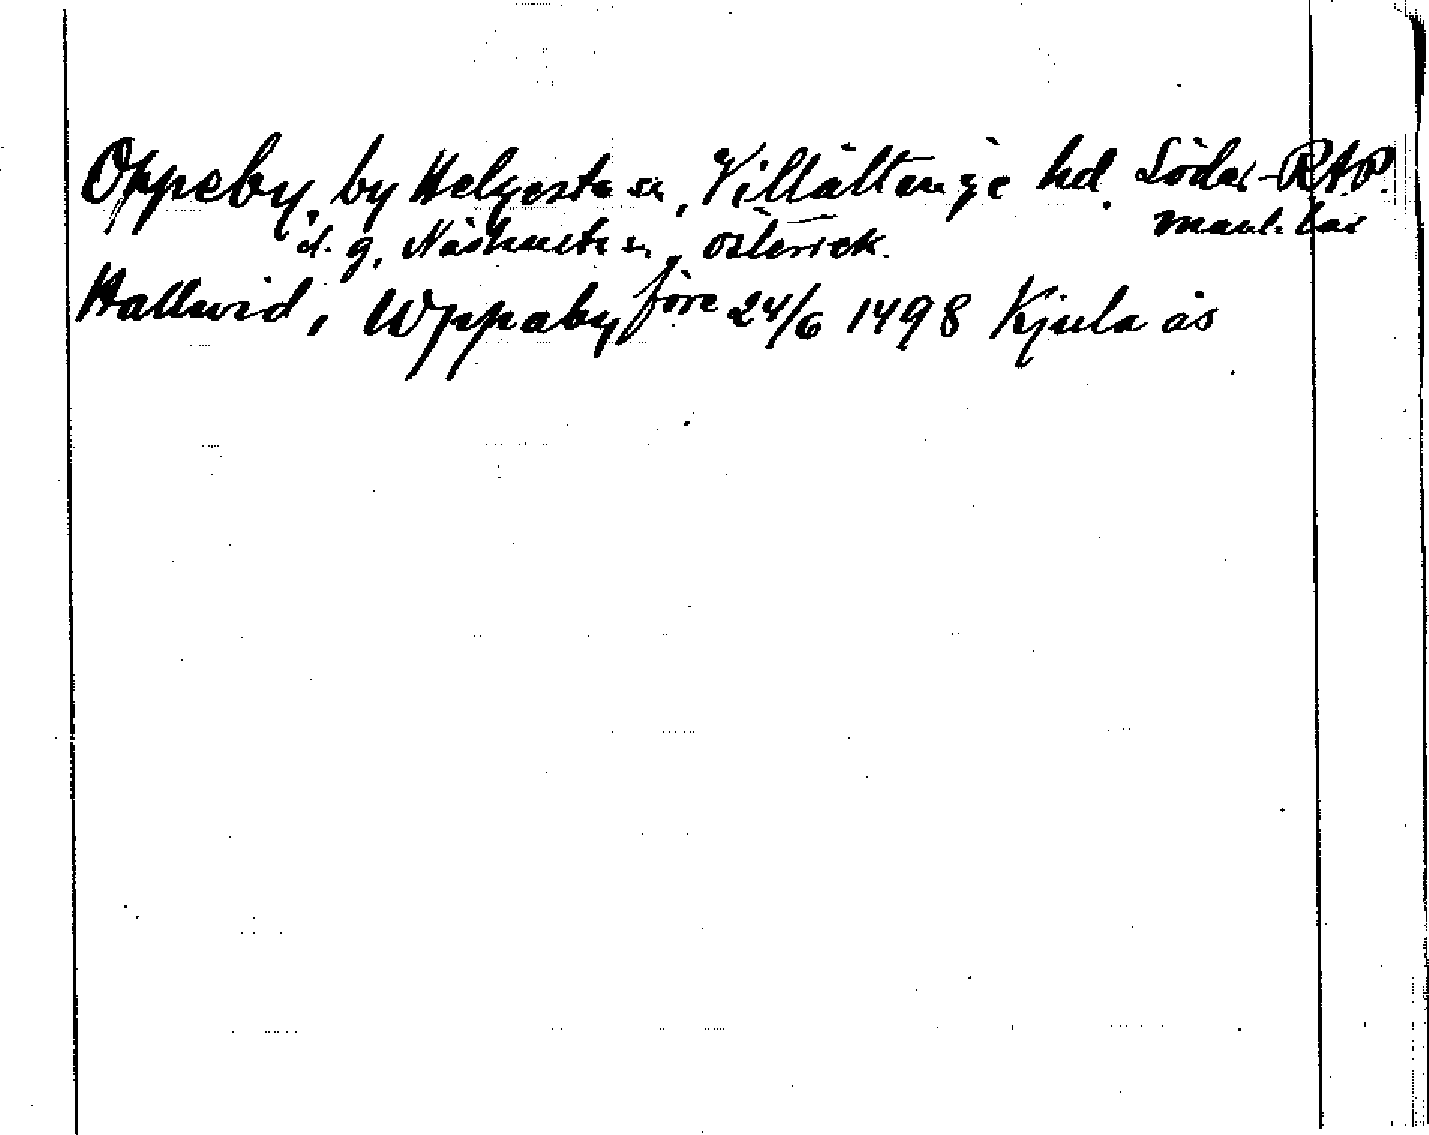 Oppeby, by Helgesta sn, Villåttinge hd. Söder- RAP.
manl. lax
d. g. Näshulta sn, Österrek.
Hallvid, i Wppaby före 24/6 1498 Kjula ås